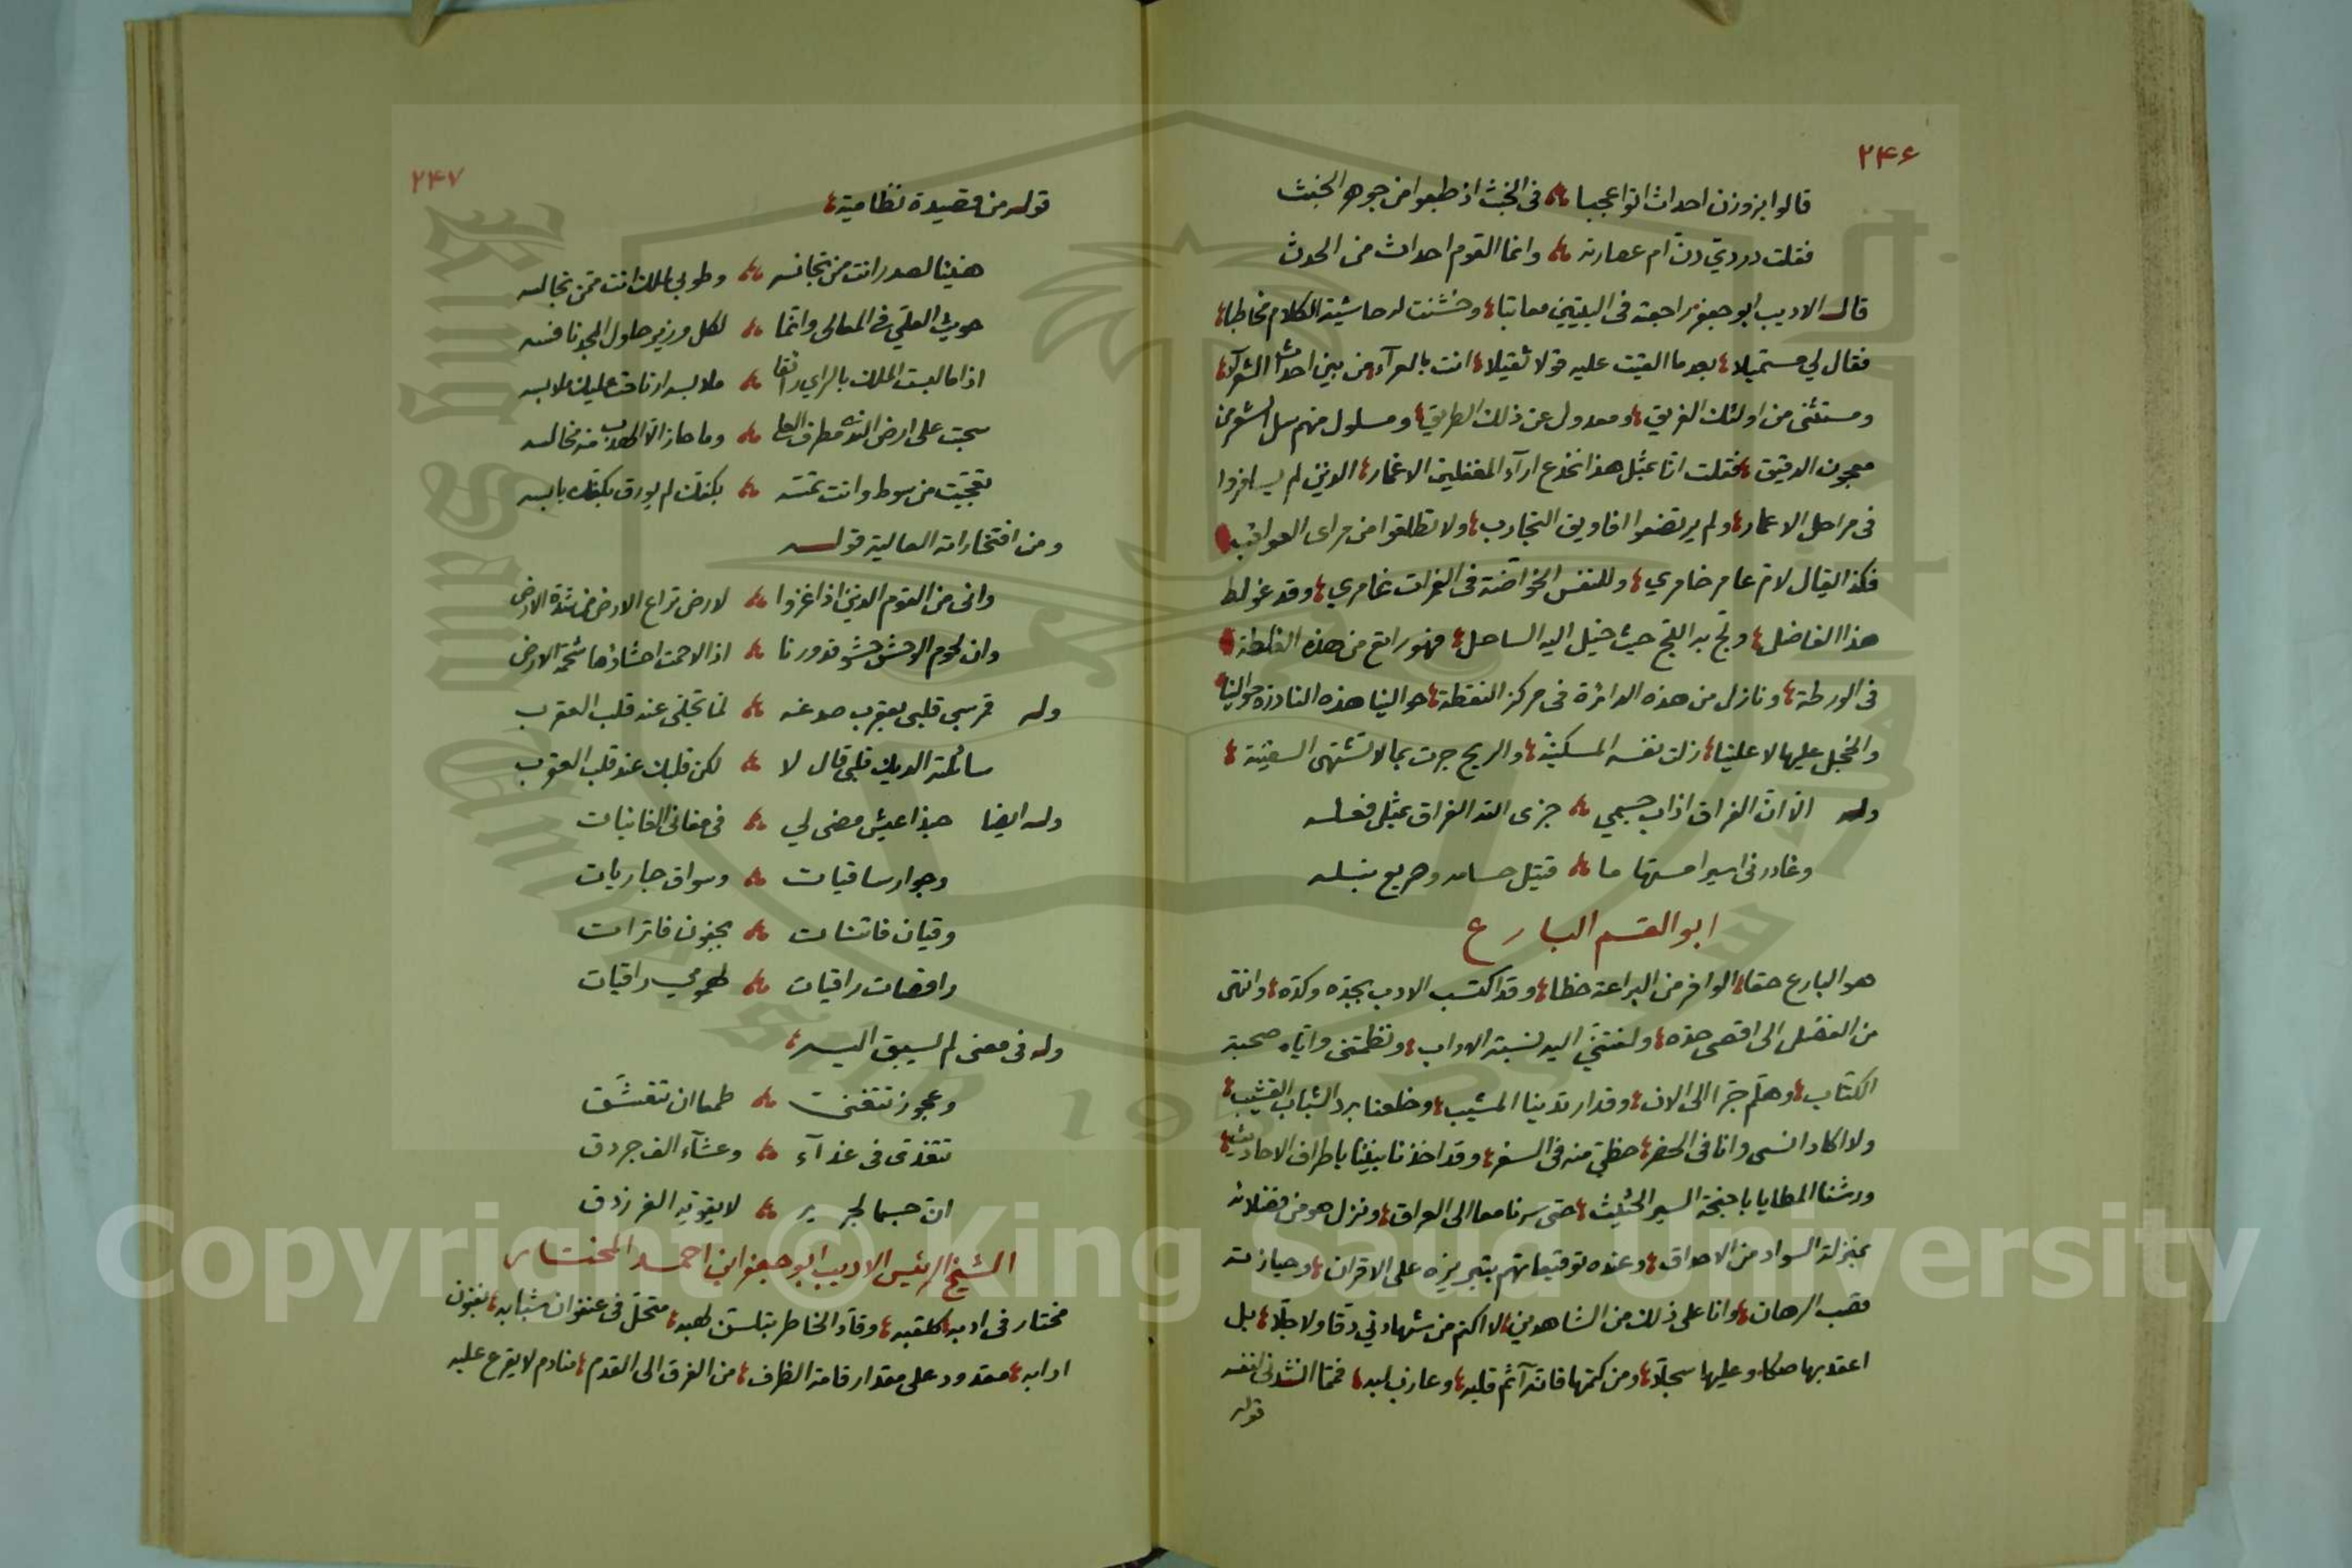 ٢٤٦
قالوا بزوزن احداث اتوا عجبا في الخبث اذ طبعوا من جوهر الخبث
فقلت دردي دن ام عصارته وانما القوم احداث من الحدث
قال الاديب ابو جعفر راجعته في البيتين معاتبا وخشنت له حاشية الكلام مخاطبا
فقال لي مستميلا بعد ما القيت عليه قولا ثقيلا انت بالعرآء من بين احداث الشعرآء
ومستثنى من اولئك الفريق ومعدول عن ذلك الطريق ومسلول منهم سل الشعر من
معجون الدقيق فقلت انا بمثل هذا نخدع ارآء المغفلين الاغمار الذين لم يسافروا
في مراحل الاعمار ولم يرتضعوا افاويق التجارب ولا تطلعوا من مراى العواقب
فكذا يقال لام عامر خامري وللنفس الخواضة في الغمرات غامري وقد غولط
هذا الفاضل ولج به اللج حيث خيل اليه الساحل فهو راتع من هذه الغلطة
في الورطة ونازل من هذه الدائرة في مركز النقطة حوالينا هذه النادرة حوالينا
والخجل عليها لا علينا زلت نفسه المسكينة والريح جرت بما لا تشتهي السفينة
وله الا ان الفراق اذاب جسمي جزى الله الفراق بمثل فعله
وغادرني اسيرا مستهاما قتيل حسامه وصريع نبله
ابو القسم البارع
هو البارع حقا الوافر من البراعة حظا وقد اكتسب الادب بجده وكده وانتهى
من الفضل الى اقصى حده ولفتني اليه نسبة الاداب ونظمتني واياه صحبة
الكتاب وهلم جرا الى الان وقد ارتدينا المشيب وخلعنا برد الشباب القشيب
ولا اكاد انسى وانا في الحضر حظي منه في السفر وقد اخذنا بيننا باطراف الاحاديث
ورشنا المطايا باجنحة السير الحثيث حتى سرنا معا الى العراق ونزل هو من فضلائه
بمنزلة السواد من الاحداق وعنده توقيعاتهم بتبريزه على الاقران وحيازته
قصب الرهان وانا على ذلك من الشاهدين لا اكتم من شهادتي دقا ولا جلا بل
اعقد بها صكا وعليها سجلا ومن كتمها فانه آثم قلبه وعازب لبه فمما انشدني لنفسه
قوله
٢٤٧
قوله من قصيدة نظامية
هنيئا لصدر انت من تجانسه وطوبى لملك انت ممن تجالسه
حويت العلى في المعالي وانما لكل وزير حاول المجد نافسه
اذا ما لبست الملك بالراي رائقا ملابسه ارتاحت عليك ملابسه
سحبت على ارض مطرف العلا وما حاز الا منه مخالسه
تعجبت من سوط وانت تمسه بكفك لم يورق بكفك يابسه
ومن افتخاراته العالية قوله
واني من القوم الذين اذا غزوا لارض تراع الارض من شدة الارض
وان لحوم الوحش حشو قدورنا اذا لاحمت احشاؤها شحمة الارض
وله قمر سبى قلبي بعقرب صدغه لما تجلى عنه قلب العقرب
سائلته الديك قلبي قال لا لكن قلبك عند قلب العقرب
وله ايضا حبذا عيش مضى لي في مغاني الغانيات
وجوار ساقيات وسواق جاريات
وقيان فاتنات بجفون فاترات
راقصات راقيات راقيات
وله في معنى لم يسبق اليه
وعجوز تتغنى طمعا ان تتعشق
تتغذى في غدآء وعشآء الف جردق
ان جسما لجرير لا يقوته الفرزدق
الشيخ الرئيس الاديب ابو جعفر ابن احمد المختار
مختار في ادبه كلقبه وقاد الخاطر متحل في عنفوان شبابه بفنون
ادابه مقدود على مقدار قامة الظرف من الفرق الى القدم منادم لا يقرع عليه
Copyright © King Saud University
King Saud University
1957